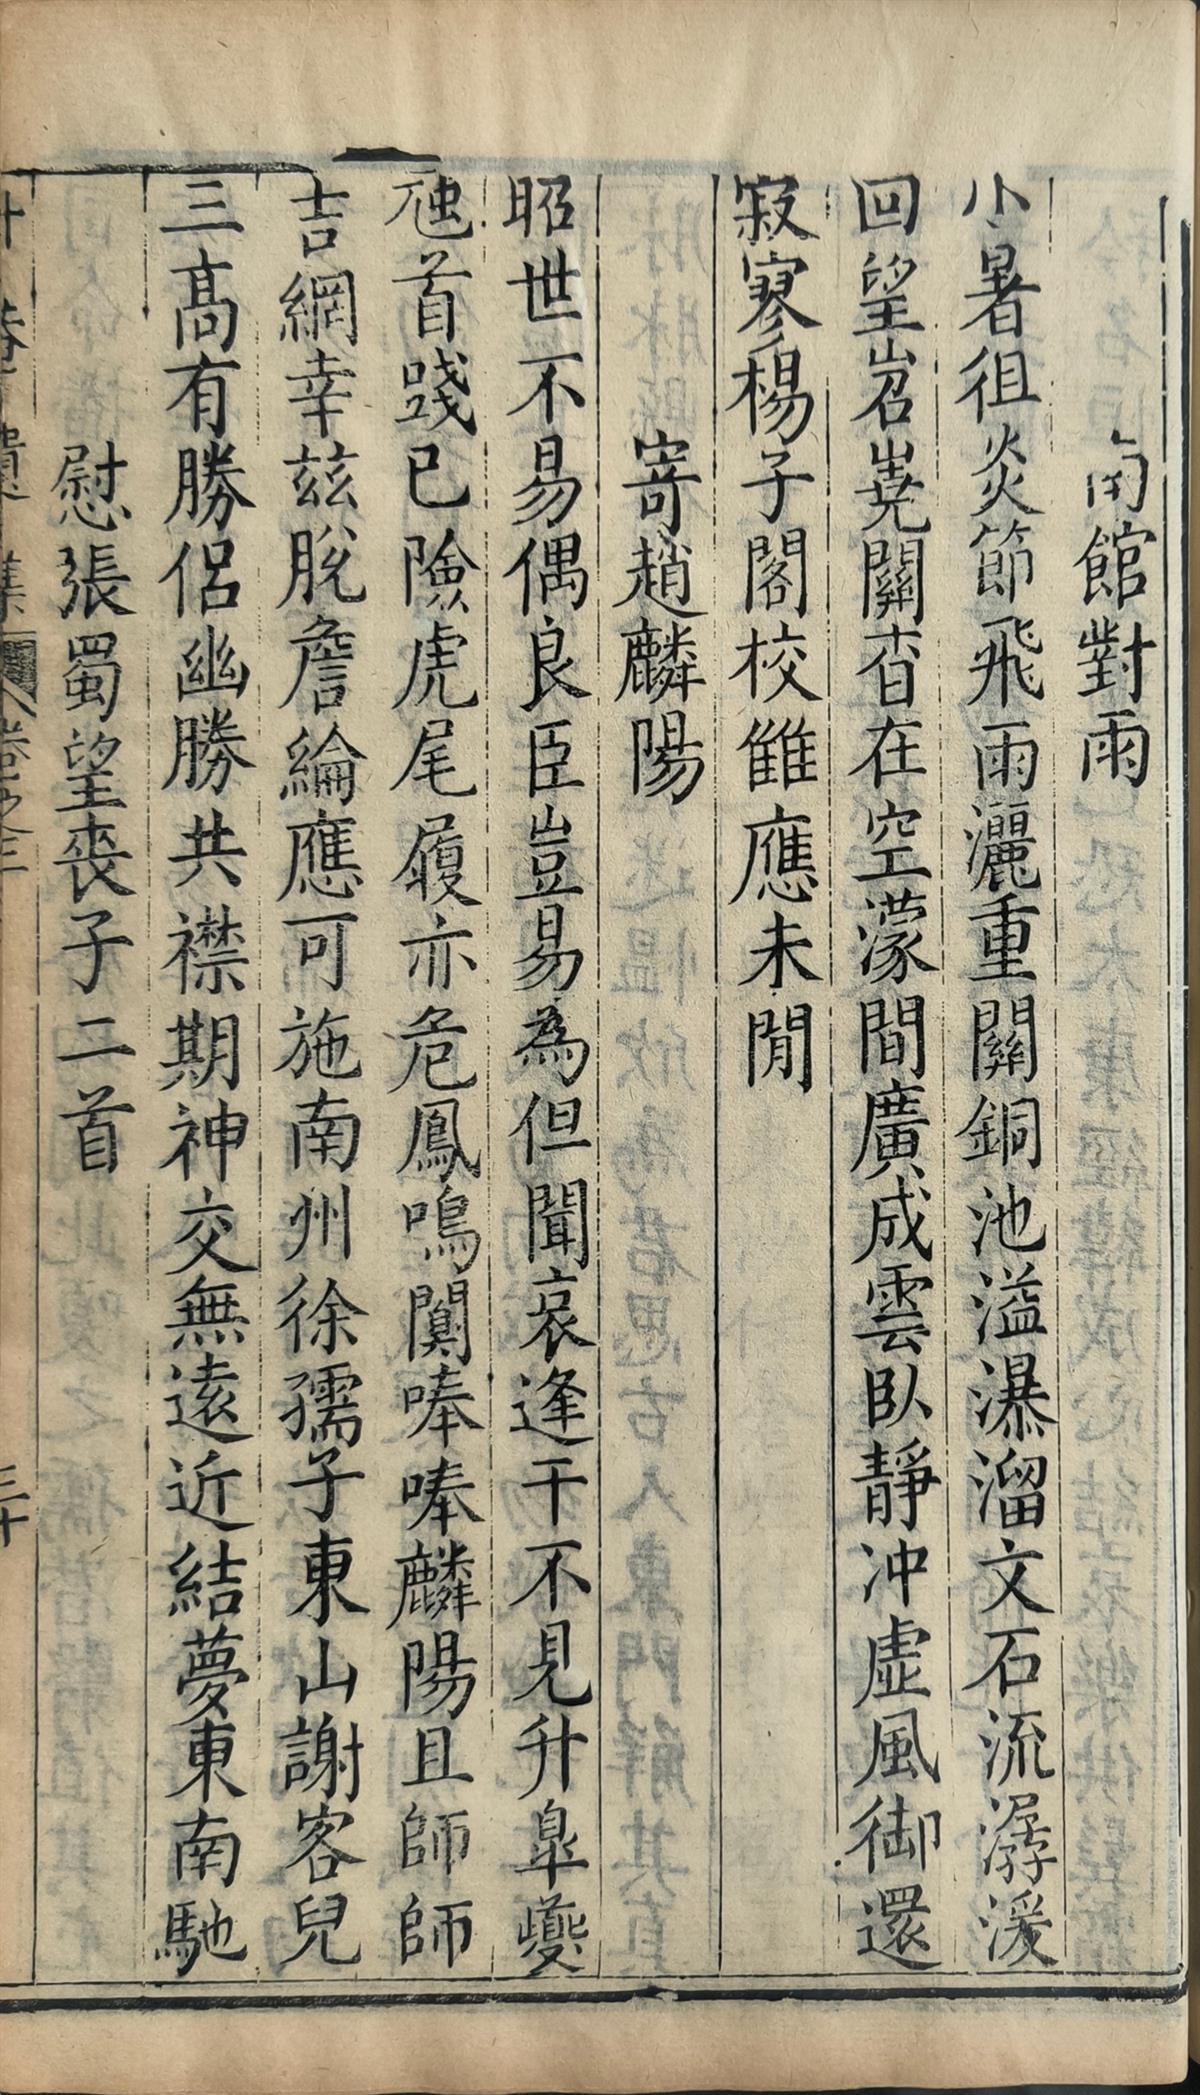 館對雨
小暑徂炎節飛雨灑重關銅池溢瀑溜文石流潺湲
回望岧嶤關杳在空濛間廣成雲臥靜冲虛風御還
寂寥楊子閣校雔應未閒
寄趙麟陽
昭世不易偶良臣豈易為但聞哀逢干不見升皐夔
虺首踐已險虎尾履亦危鳳鳴闃唪唪麟陽且師師
吉網幸茲脫詹綸應可施南州徐孺子東山謝客兒
三髙有勝侣幽勝共襟期神交無遠近結夢東南馳
慰張蜀望喪子二首
升菴遺集 卷之三 三十